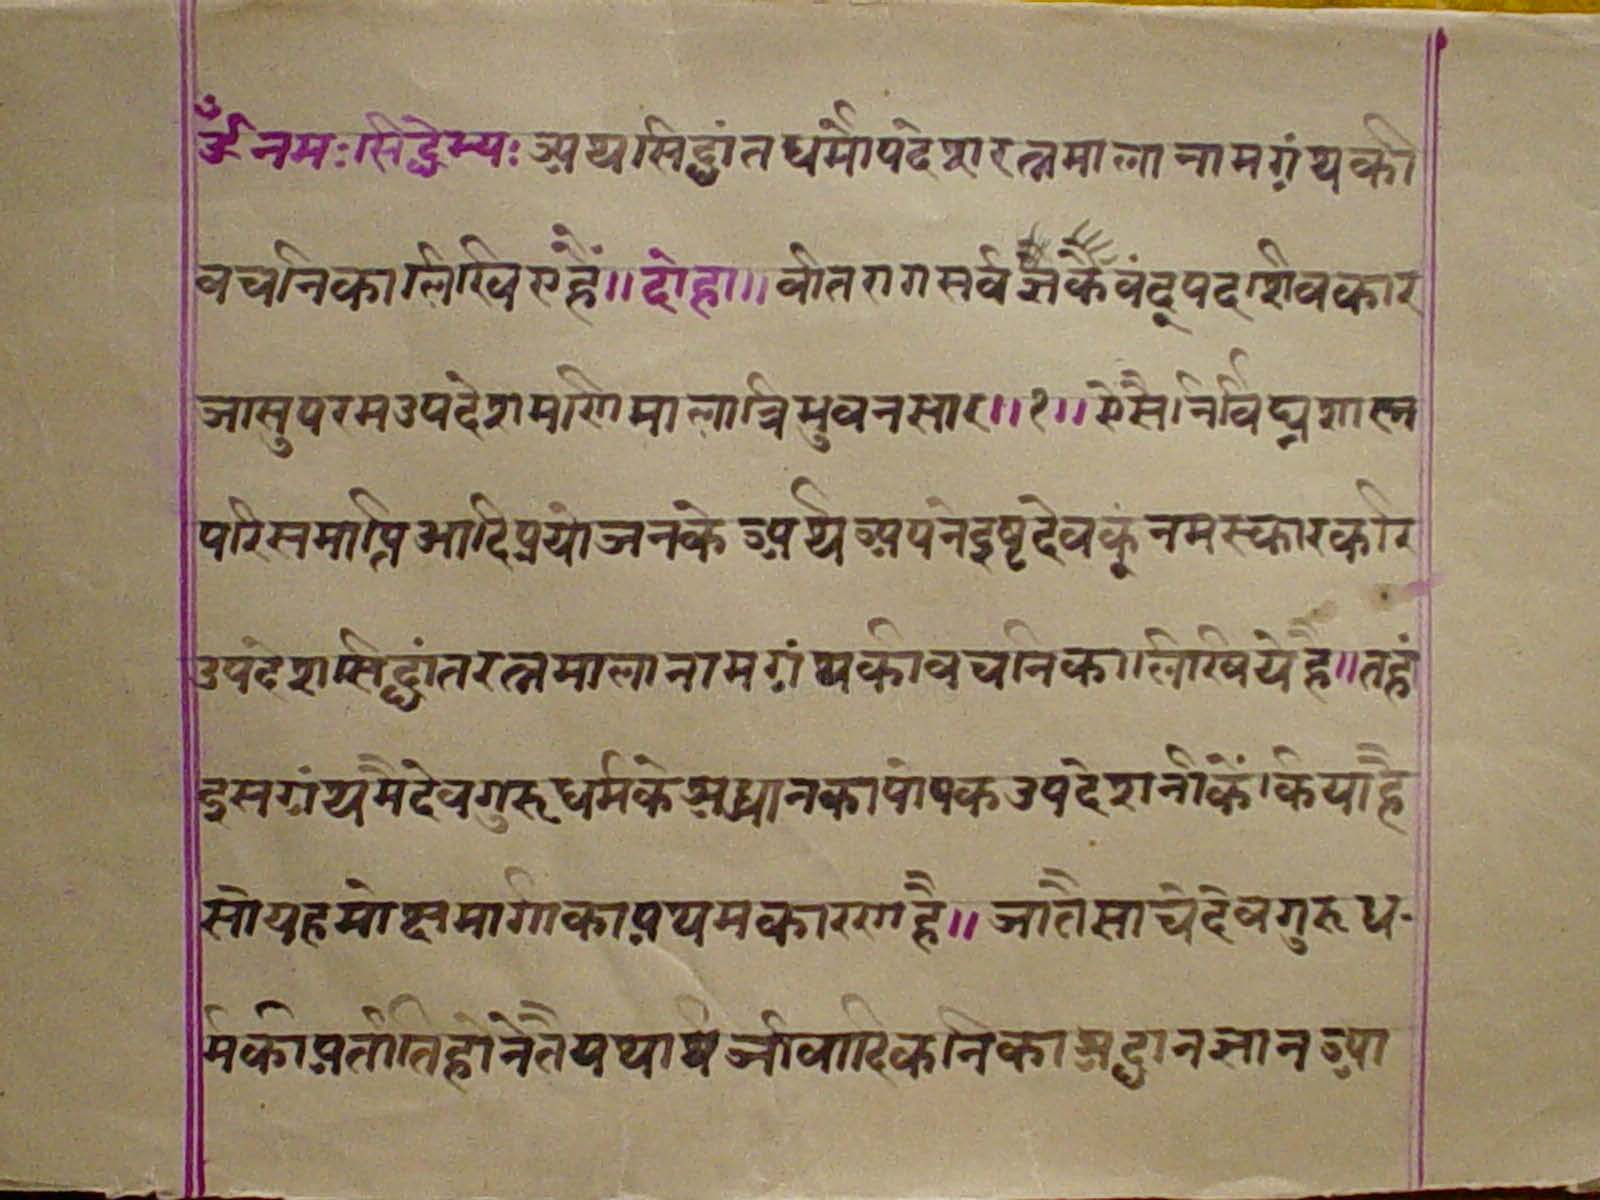 ॐ नमः सिद्धेभ्यः अथ सिद्धांत धर्मोपदेश रत्नमाला नाम ग्रंथ की
वचनिका लिखिए हैं॥ दोहा॥ वीतराग सर्वज्ञ के वंदू पद शिवकार
जासु परम उपदेश मणि माला त्रिभुवन सार॥१॥ ऐसै निर्विघ्न शास्त्र
परिसमाप्ति आदि प्रयोजन के अर्थ अपने इष्टदेव कूं नमस्कार करि
उपदेश सिद्धांत रत्नमाला नाम ग्रंथ की वचनिका लिखिये है॥ तहां
इस ग्रंथ मै देव गुरू धर्म के श्रद्धान का पोषक उपदेश नीकैं किया है
सो यह मोक्षमार्ग का प्रथम कारण है॥ जातै साचे देव गुरु ध-
र्म की प्रतीति होने तै यथार्थ जीवादिकनि का श्रद्धान ज्ञान आ